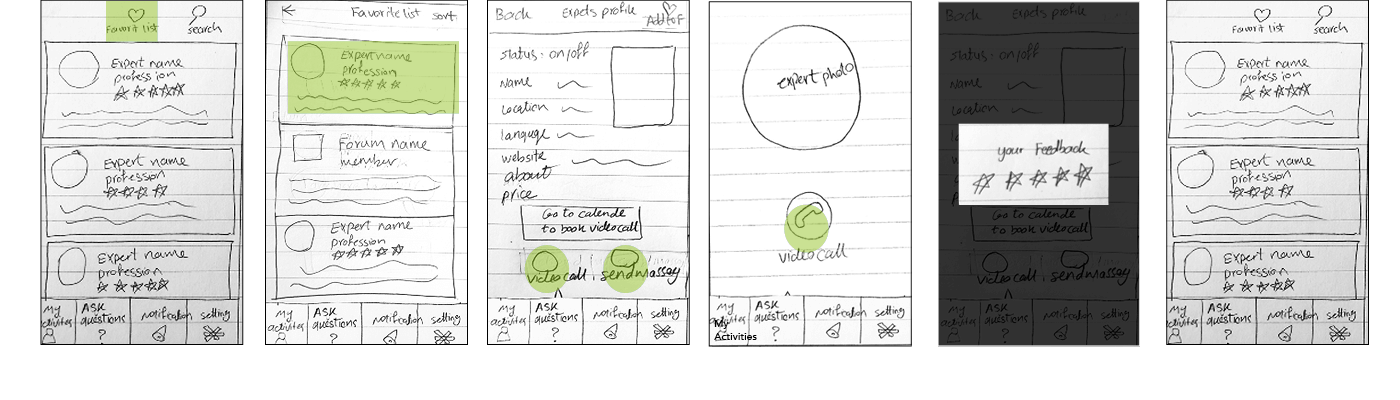 Favorit list
search
Expert name
profession
Expert name
profession
Expert name
profession
My
activites
ASK
questions
?
notification
setting
Favorite list
sort
Expert name
profession
Forum name
member
Expert name
profession
My
activites
ASK
questions
?
notification
setting
Back
Expets profile
Add to F
status - on/off
Name
Location
languge
website
about
price
Go to calende
to book videocall
videocall
send massay
My
activites
ASK
questions
?
notification
setting
expert photo
videocall
My
Activities
ASK
questions
?
notification
setting
Back
Expets profile
status - on/off
Name
Location
your Feedback
price
Go to calende
to book videocall
videocall
send massay
My
activites
ASK
questions
?
notification
setting
Favorit list
search
Expert name
profession
Expert name
profession
Expert name
profession
My
activites
ASK
questions
?
notification
setting